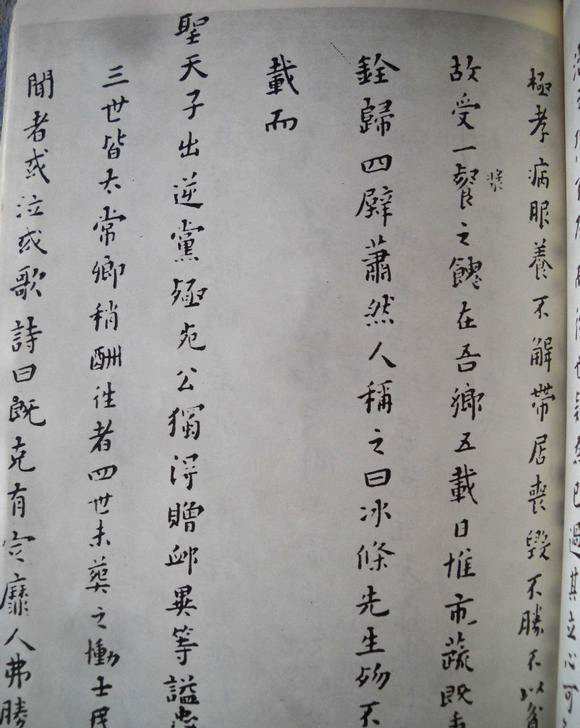 極孝病眼養不解帶居喪毀不勝不以
故受一餐之餽在吾鄉五載日惟市蔬既
銓歸四壁蕭然人稱之曰冰條先生物不
載而
聖天子出逆黨殛死公獨得贈卹異等謚忠
三世皆太常卿稍酬往者四世未葬之慟士民
聞者或泣或歌詩曰既克有定靡人弗勝